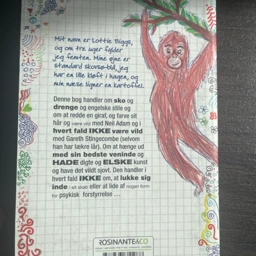 Mit navn er Lottie Biggs,
og om tre uger fylder
jeg femten. Mine øjne er
standard skovsø-blå, jeg
har en lille kløft i hagen, og
min næse ligner en kartoffel.
Denne bog handler om sko og
drenge og engelske stile og
om at redde en giraf, og farve sit
hår og være vild med Neil Adam og i
hvert fald IKKE være vild
med Gareth Stingecombe (selvom
han har lækre lår). Om at hænge ud
med sin bedste veninde og
HADE digte og ELSKE kunst
og have det vildt sjovt. Den handler i
hvert fald IKKE om, at lukke sig
inde i et skab eller at lide af nogen form
for psykisk forstyrrelse ...
ROSINANTE&CO